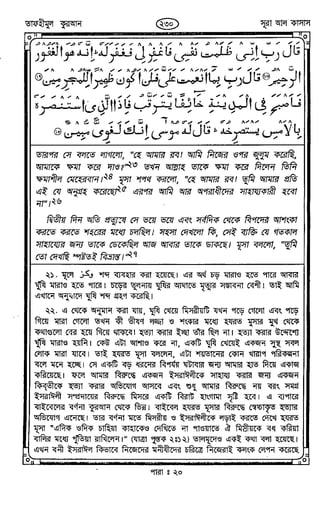 তাফহীমুল কুরআন
২৩০
সূরা আল কাসাস
قَالَ رَبِّ إِنِّي ظَلَمْتُ نَفْسِي فَاغْفِرْ لِي فَغَفَرَ لَهُ إِنَّهُ هُوَ الْغَفُورُ
الرَّحِيمُ ⑯ قَالَ رَبِّ بِمَا أَنْعَمْتَ عَلَيَّ فَلَنْ أَكُونَ ظَهِيرًا لِّلْمُجْرِمِينَ ⑰
فَأَصْبَحَ فِي الْمَدِينَةِ خَائِفًا يَتَرَقَّبُ فَإِذَا الَّذِي اسْتَنْصَرَهُ
بِالْأَمْسِ يَسْتَصْرِخُهُ قَالَ لَهُ مُوسَىٰ إِنَّكَ لَغَوِيٌّ مُّبِينٌ ⑱
তারপর সে বলতে লাগলো, "হে আমার রব! আমি নিজের ওপর জুলুম করেছি,
আমাকে ক্ষমা করে দাও।"২৩ তখন আল্লাহ তাকে ক্ষমা করে দিলেন তিনি
ক্ষমাশীল মেহেরবান।২৪ মূসা শপথ করলো, "হে আমার রব! তুমি আমার প্রতি
এই যে অনুগ্রহ করেছো২৫ এরপর আমি আর অপরাধীদের সাহায্যকারী হবো
না"।২৬
দ্বিতীয় দিন অতি প্রত্যুষে সে ভয়ে ভয়ে এবং সর্বদিক থেকে বিপদের আশংকা
করতে করতে শহরের মধ্যে চলছিল। সহসা দেখলো কি, সেই ব্যক্তি যে গতকাল
সাহায্যের জন্য তাকে ডেকেছিল আজ আবার তাকে ডাকছে। মূসা বললো, "তুমি
তো দেখছি স্পষ্টতই বিভ্রান্ত।"২৭
২১. মূলে وكز শব্দ ব্যবহার করা হয়েছে। এর অর্থ চড় মারাও হতে পারে আবার
ঘুঁষি মারাও হতে পারে। চড়ের তুলনায় ঘুঁষির আঘাতে মৃত্যুর সম্ভাবনা বেশী। তাই আমি
এখানে অনুবাদে ঘুঁষি শব্দ গ্রহণ করেছি।
২২. এ থেকে অনুমান করা যায়, ঘুঁষি খেয়ে মিসরীয়টি যখন পড়ে গেলো এবং পড়ে
গিয়ে মারা গেলো তখন কী ভীষণ লজ্জা ও শংকার মধ্যে হযরত মূসার মুখ থেকে
কথাগুলো বের হয়ে গিয়ে থাকবে। হত্যা করার ইচ্ছা তাঁর ছিল না। হত্যা করার উদ্দেশ্যে
ঘুঁষি মারাও হয়নি। কেউ এটা আশাও করে না, একটি ঘুঁষি খেয়েই একজন সুস্থ সবল
লোক মারা যাবে। তাই হযরত মূসা বললেন, এটা শয়তানের কোন খারাপ পরিকল্পনা
বলে মনে হচ্ছে। সে একটি বড় ধরনের বিপর্যয় ঘটাবার জন্য আমার হাত দিয়ে একাজ
করিয়েছে। ফলে আমার বিরুদ্ধে একজন ইসরাঈলীকে সাহায্য করার জন্য একজন
কিবতীকে হত্যা করার অভিযোগ আসবে এবং শুধু আমার বিরুদ্ধে নয় বরং সমগ্র
ইসরাঈলী সম্প্রদায়ের বিরুদ্ধে মিসরে একটি বিরাট হাংগামা সৃষ্টি হবে। এ ব্যাপারে
বাইবেলের বর্ণনা কুরআন থেকে ভিন্ন। বাইবেল হযরত মূসার বিরুদ্ধে স্বেচ্ছাকৃত হত্যার
অভিযোগ এনেছে। তার বর্ণনা মতে মিসরীয় ও ইসরাঈলীকে লড়াই করতে দেখে হযরত
মূসা "এদিক ওদিক চাহিয়া কাহাকেও দেখিতে না পাওয়াতে ঐ মিস্রীয়কে বধ করিয়া
বালির মধ্যে পুঁতিয়া রাখিলেন।" (যাত্রা পুস্তক ২:১২) তালমূদেও একই কথা বলা হয়েছে।
এখন বনী ইসরাঈল কিভাবে নিজেদের মনীষীদের চরিত্রে নিজেরাই কলংক লেপন করেছে
পারা : ২০